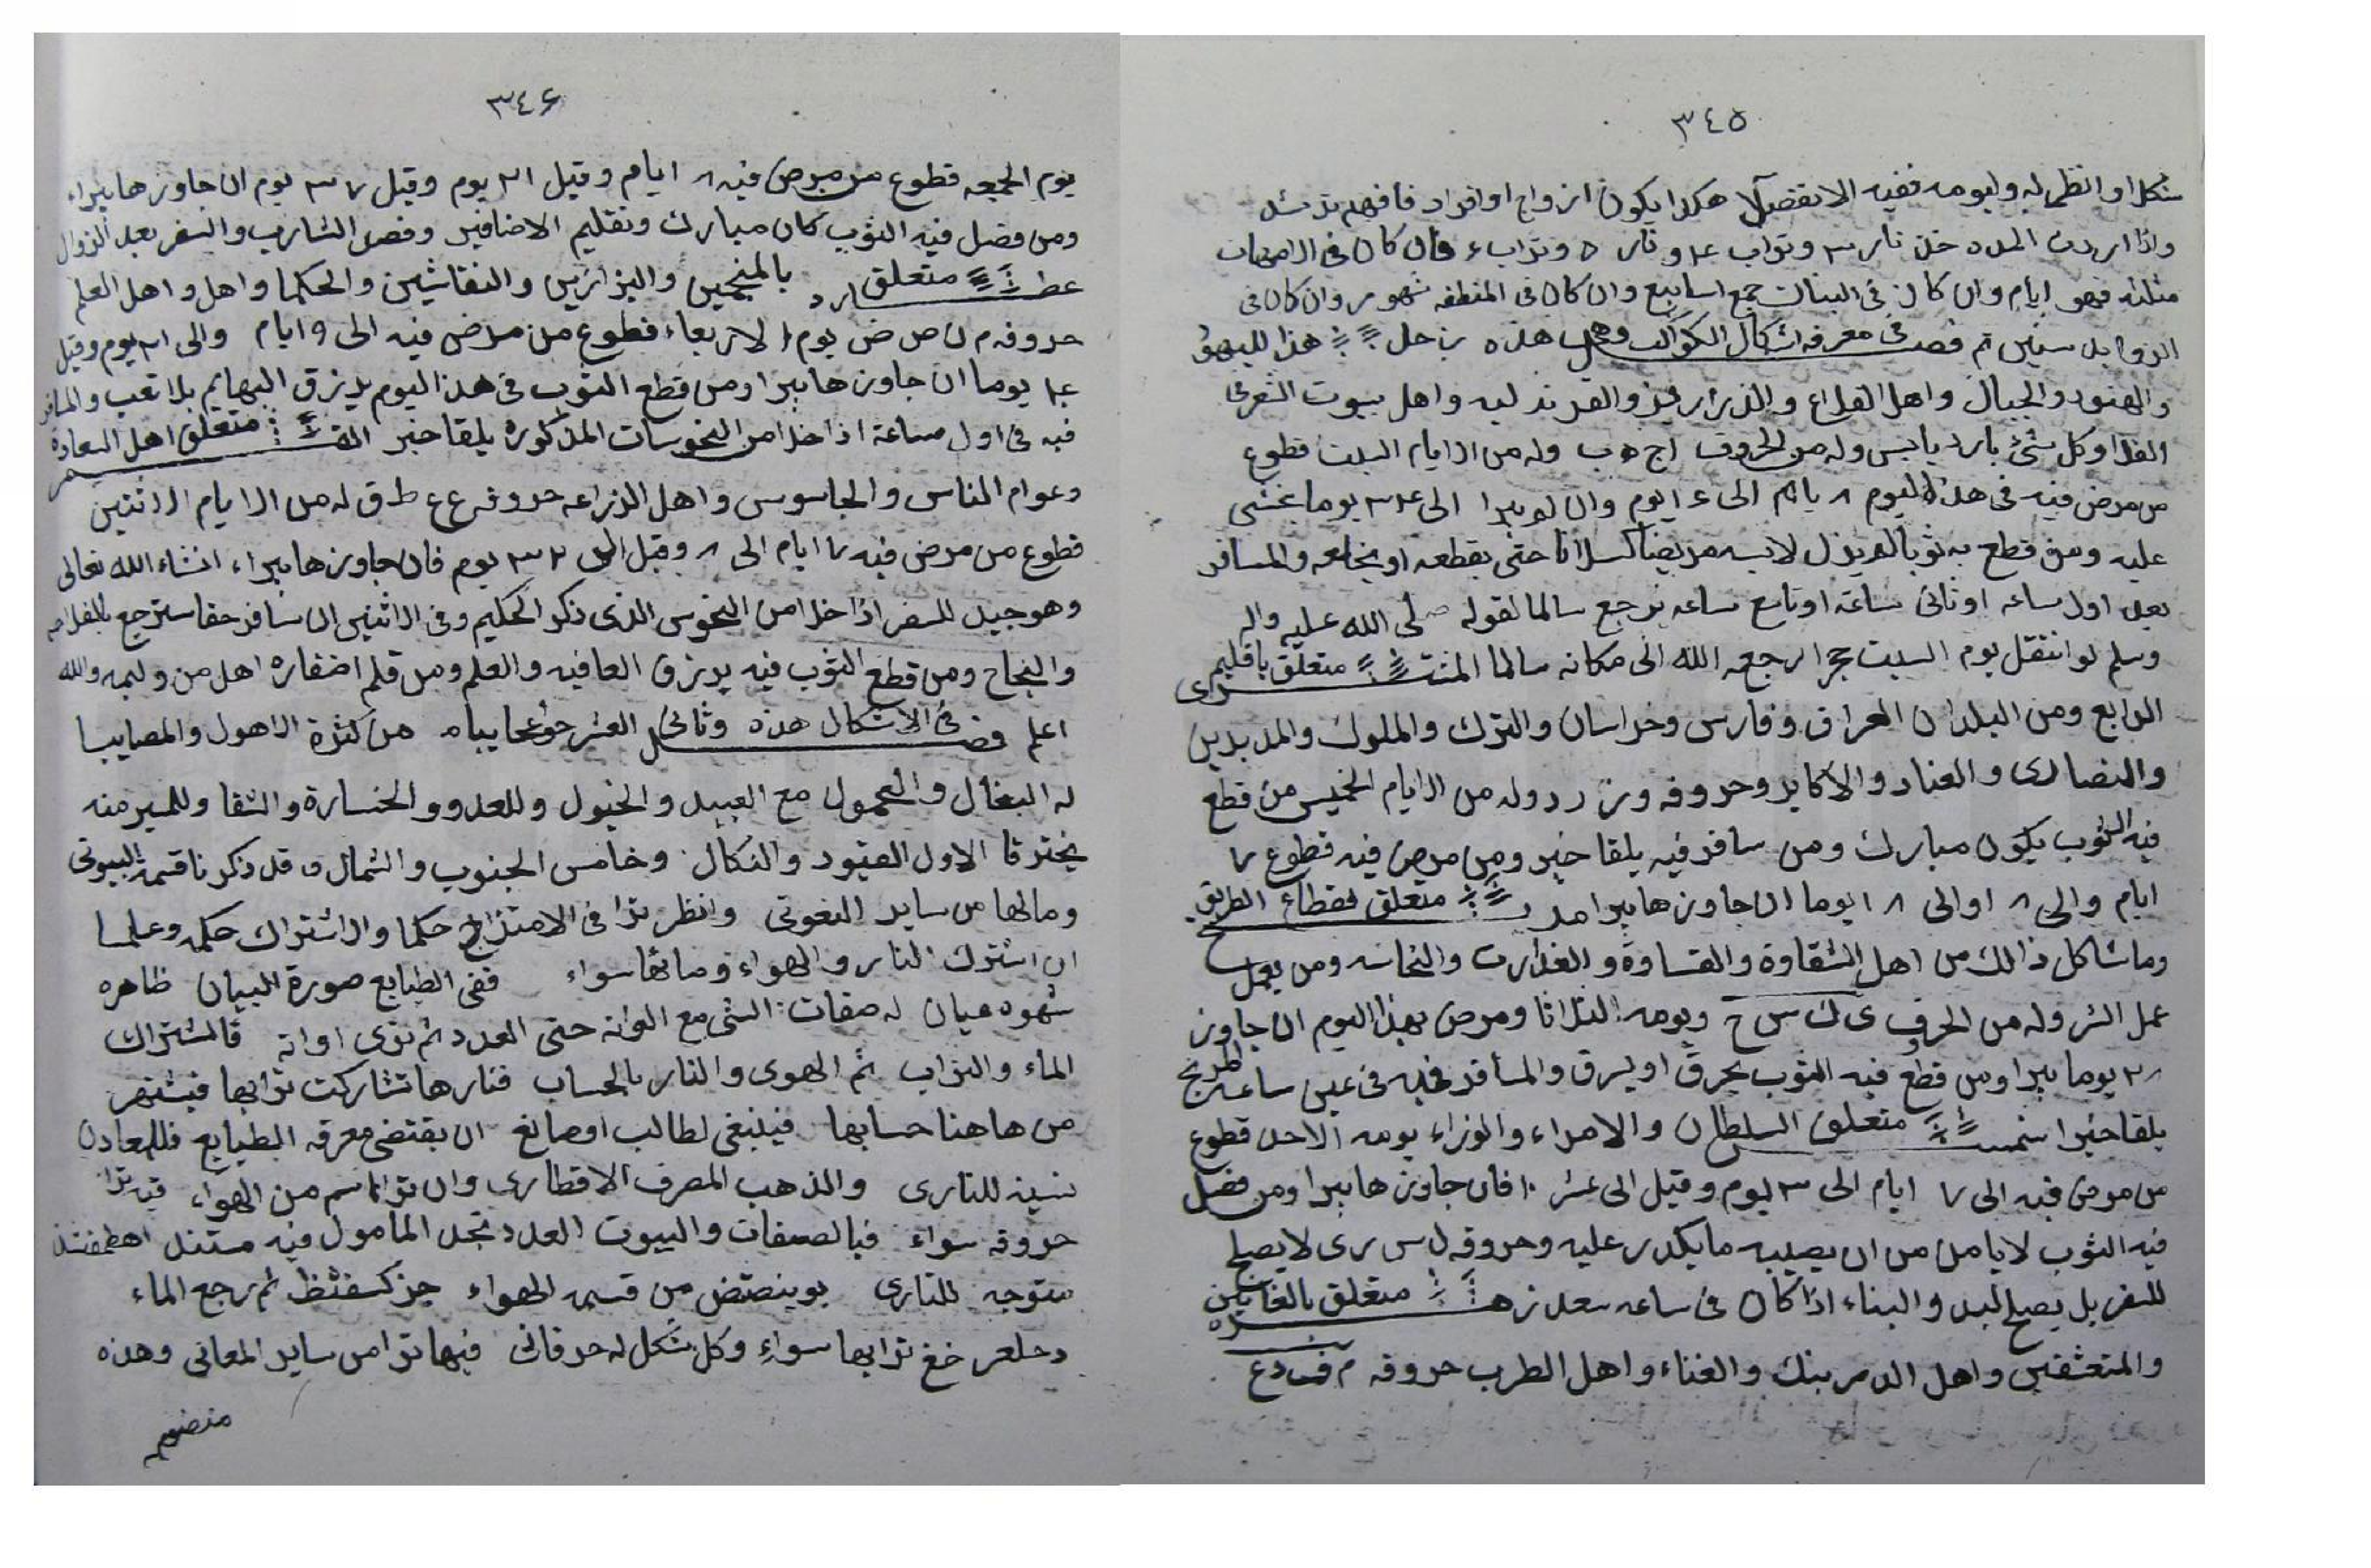 ٣٤٥
شكلا وانظر له وليومه ففيه الانفصال هكذا يكون ازواج او افراد فافهم ترشد
واذا اردت المده خذ نار ٣ وتراب ٤ و نار ٥ وتراب ٤ فان كان فى الامهات
مثلثه فهو ايام وان كان فى البنات جمع اسابيع وان كان فى المنطقه شهور وان كان فى
الزوايد سنين ثم فصل فى معرفه اشكال الكواكب وهى هذه زحل هذا لليهود
والهنود والجبال واهل القلاع واهل بيوت الشعر فى
الفلا وكل شئ بارد يابس وله من الحروف ا ج ه ب وله من الايام السبت قطوع
من مرض فيه فى هذا اليوم ٨ يام الى ٤ ايوم وان لم يبرا الى ٣٤ يوما يخشى
عليه ومن قطع به ثوبا لم يزل لابسه مريضا كسلانا حتى يقطعه او يخلعه والمسافر
بعد اول ساعه او ثانى ساعة او تاسع ساعه يرجع سالما لقوله صلى الله عليه واله
وسلم لو انتقل يوم السبت حجرا لرجعه الله الى مكانه سالما المشترى متعلق باقليم
الرابع ومن البلدان العراق وفارس وخراسان والترك والملوك والمدبرين
والنصارى والعناد والاكابر وحروفه وز ر د وله من الايام الخميس من قطع
فيه الثوب يكون مبارك ومن سافر فيه يلقا خير ومن مرض فيه قطوع ٧
ايام والى ٨ اوالى ١٨ يوما ان جاوزها يبرا المريخ متعلق بقطاع الطريق
وما شاكل ذالك من اهل الشقاوة والقساوة و الغدارت والنحاسه ومن يعمل
عمل الشر وله من الحرف ى ك س ح ويومه الثلاثا ومرض بهذا اليوم ان جاوز
٢٨ يوما يبرا ومن قطع فيه الثوب يحرق او يسرق والمسافر فيه فى غير ساعه المريخ
يلقا خيرا شمس متعلق السلطان والامراء والوزراء يومه الاحد قطوع
من مرض فيه الى ٧ ايام الى ٣ ليوم وقيل الى عشر ١٠ فان جاوزها يبرا ومن فصل
فيه الثوب لا يامن من ان يصيبه ما يكدر عليه وحروفه ل س ر ى لا يصلح
للسفر بل يصلح لبد والبناء اذا كان فى ساعه سعد زهره متعلق بالعاشقين
والمتعشقين واهل الدمر بنك والغناء واهل الطرب حروفه م ف د ع
٣٤٦
يوم الجمعه قطوع من مرض فيه ٨ ايام وقيل ٢١ يوم وقيل ٣٧ يوم ان جاوزها يبراء
ومن فصل فيه الثوب كان مبارك وتقليم الاضافير وقص الشارب والسفر بعد الزوال
عطارد متعلق بالمنجمين والبزازين والنقاشين والحكما واهل واهل العلم
حروفه م ن ص ض يوم الاربعاء قطوع من مرض فيه الى ٩ ايام والى ٢١ يوم وقيل
٤١ يوما ان جاوزها يبرا ومن قطع الثوب فى هذا اليوم يرزق البهايم بلا تعب والمسافر
فيه فى اول ساعة اذا خلا من النحوسات المذكوره يلقا خير القمر متعلق اهل السعاده
وعوام الناس والجاسوس واهل الزراعه حروفه ع ع ط ق له من الايام الاثنين
قطوع من مرض فيه ٧ ايام الى ٨ وقيل الى ٣٢ يوم فان جاوزها يبراء انشاء الله تعالى
وهو جيد للسفر اذا خلا من النحوس الذى ذكر الحكيم وفى الاثنين ان سافر حقا سترجع بالفلاحه
والنجاح ومن قطع الثوب فيه يرزق العافيه والعلم ومن قلم اضفاره والله
اعلم فصل فى الاشكال هذه وثانى العشر من كثرة الاهول والمصايبا
له البغال والحمول مع العبيد والخيول وللعدو والخسارة والشقا وللسير منه
يخترقا الاول القيود والنكال وخامس الجنوب والشمال وقد ذكرنا قسمة البيوتى
ومالها من ساير النعوتى وانظر ترا فى الامتزاج حكما والاشتراك حكمه وعلما
ان اشترك النار والهواء وما بقا سواء ففى الطبايع صورة البيان ظاهره
شهوه عيان له صفات الشى مع الوانه حتى العدد ثم توى اوانه فالمشتراك
الماء والتراب ثم الهوى والنار بالحساب فنارها تشاركت ترابها فيشتهر
من هاهنا حسابها فينبغى لطالب اوصانع ان يقتضى معرفه الطبايع فللمعادن
نسبة للنارى والذهب المصرف الاقطارى وان ترا قاسم من الهواء فيه ترا
حروفه سواء فبالصفات والبيوت العدد تجد المامول فيه مستند اهطمفشذ
متوجه للنارى بوينصتض من قسمه الهواء جزكسقثظ ثم رجع الماء
دحلعر خغ ترابها سواء وكل شكل له حرفانى فيها ترا من ساير المعانى وهذه